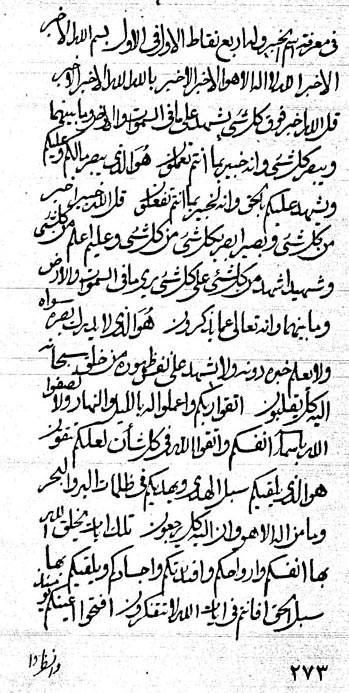 في معرفة اسم الخبير وله اربع نقاط الاول في الاول بسم الله الاخبر
الاخبر الله لا اله الا هو الاخبر الاخبر بالله الله الاخبر الاخبر
قل الله اخبر فوق كل شئ يشهد على ما في السموات والارض وما بينهما
ويبصر كل شئ وانه خبير بما انتم تعملون هو الذي يبصر بالكم وعليكم
ويشهد عليكم بالحق وانه لخبير بما انتم تفعلون قل الله خبير اخبر
من كل شئ وبصير ابصر كل شئ من كل شئ وعليم اعلم من كل شئ
وشهيد اشهد من كل شئ على كل شئ يرى ما في السموات والارض
وما بينهما وانه تعالى عما يذكرون هو الذي لا يدرك بصره سواه
ولا يعلم خبره دونه ولا يشهد على ظهوره من خلق سبحانه
اليه كل يقلبون اتقوا ربكم واعملوا له بالليل والنهار ولا تصفوا
الله باسماء انفسكم واتقوا الله في كل شأن لعلكم تتقون
هو الذي يلقيكم سبل الهدى ويهديكم في ظلمات البر والبحر
وما من اله الا هو وان اليه كل يرجعون تلك ايات يخلق الله
بها انفسكم وارواحكم وافئدتكم واجسادكم ويلقيكم بها
سبل الحق افانتم في ايات الله لا تتفكرون افتحوا اعينكم
وانظروا
٢٧٣